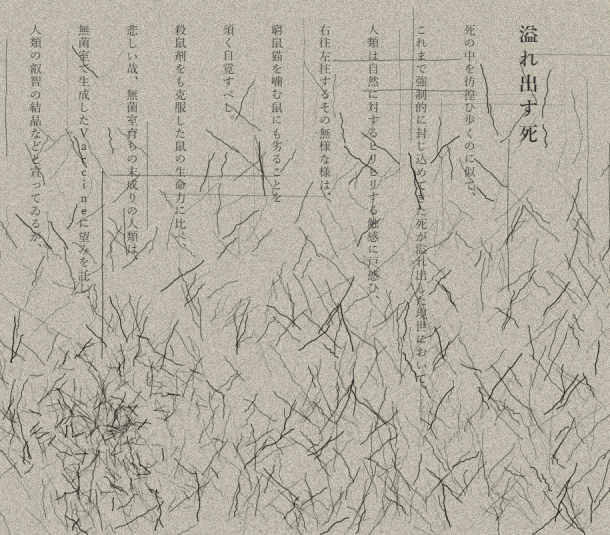 溢れ出す死
死の中を彷徨ひ歩くのに似て、
これまで強制的に封じ込めてきた死が溢れ出した現世において、
人類は自然に対するヒリヒリする触感に戸惑ひ、
右往左往するその無様な様は、
窮鼠猫を噛む鼠にも劣ることを
須く自覚すべし。
殺鼠剤をも克服した鼠の生命力に比べ、
悲しい哉、無菌室育ちの未成りの人類は、
無菌室で生成したVaccineに望みを託し
人類の叡智の結晶などと宣ってゐるが、